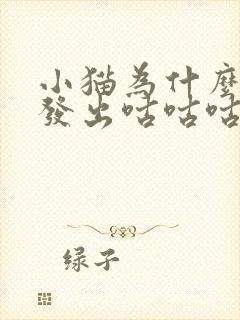 小猫為什麼
發出咕咕咕
绿子